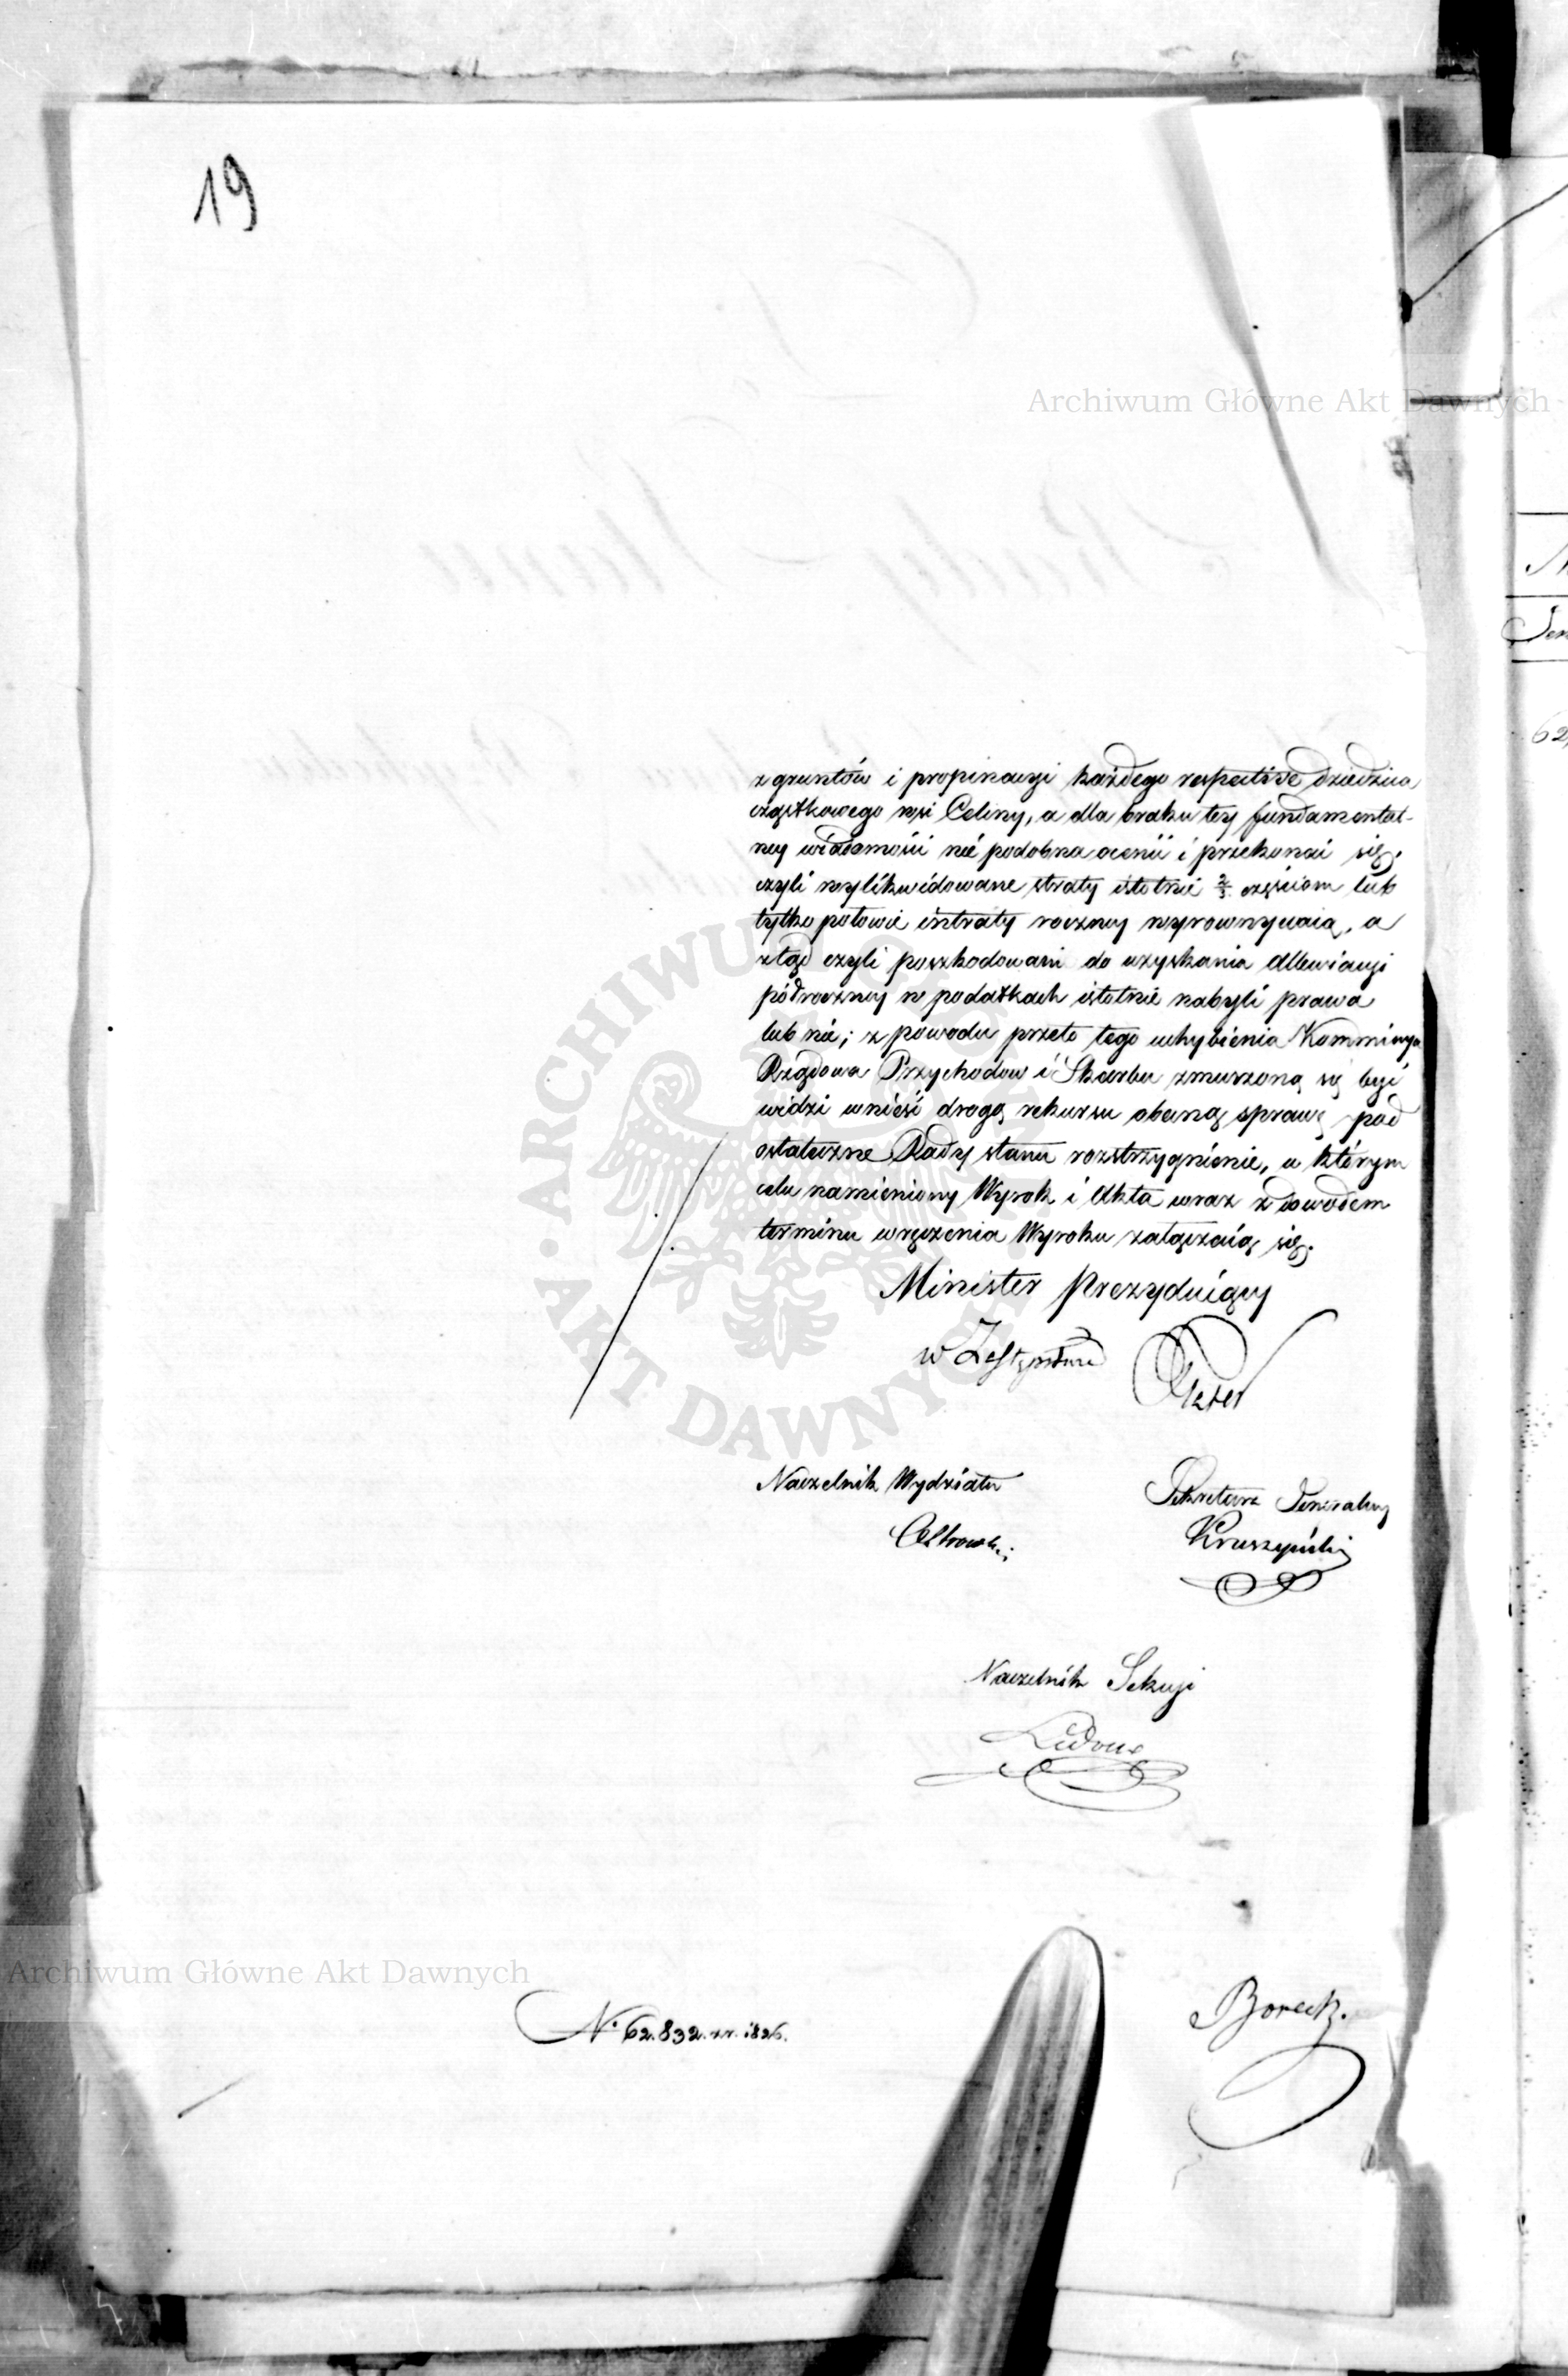 19
Archiwum Główne Akt Dawnych
z gruntów i propinacyi każdego respective dziedzica
cząstkowego wsi Celiny, a dla braku tey fundamental-
ney wiadomości nie podobna ocenić i przekonać się,
czyli wylikwidowane straty istotnie 2/3 częściom lub
tylko połowie intraty roczney wyrownywaią, a
ztąd czyli poszkodowani do uzyskania Allewiacyi
półroczney w podatkach istotnie nabyli prawa
lub nie; z powodu przeto tego uchybienia Kommissya
Rządowa Przychodow i Skarbu zmuszoną się być
widzi wnieść drogą rekursu obecną sprawę pod
ostateczne Rady stanu rozstrzygnienie, w którym
celu namieniony Wyrok i Akta wraz z dowodem
terminu wręczenia Wyroku załączaią się.
Minister Prezyduiący
w Zastępstwie
Naczelnik Wydziału
Sekretarz Generalny
Ostrowski
Kruszyński
Naczelnik Sekcyi
Archiwum Główne Akt Dawnych
N. 62.832. 1826.
Boreck.
ARCHIWUM GŁÓWNE AKT DAWNYCH
62